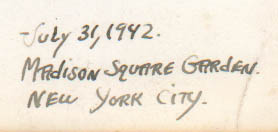 July 31, 1942.
Madison Square Garden.
New York City.